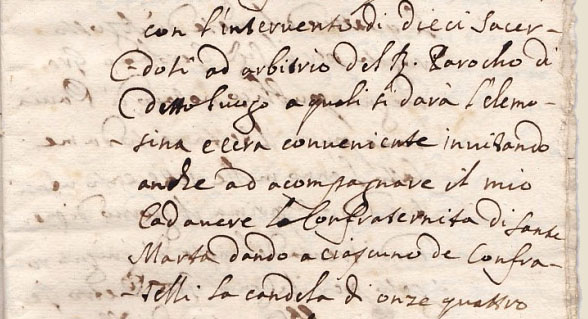 con l'intervento di dieci sacer-
-doti ad arbitrio del R. Parocho di
detto luogo a quali si darà l'elemo-
sina e cera conveniente invitando
anche ad acompagnare il mio
Cadavere la Confraternita di Santa
Marta dando a ciascuno de Confra-
-telli la candela di onze quattro